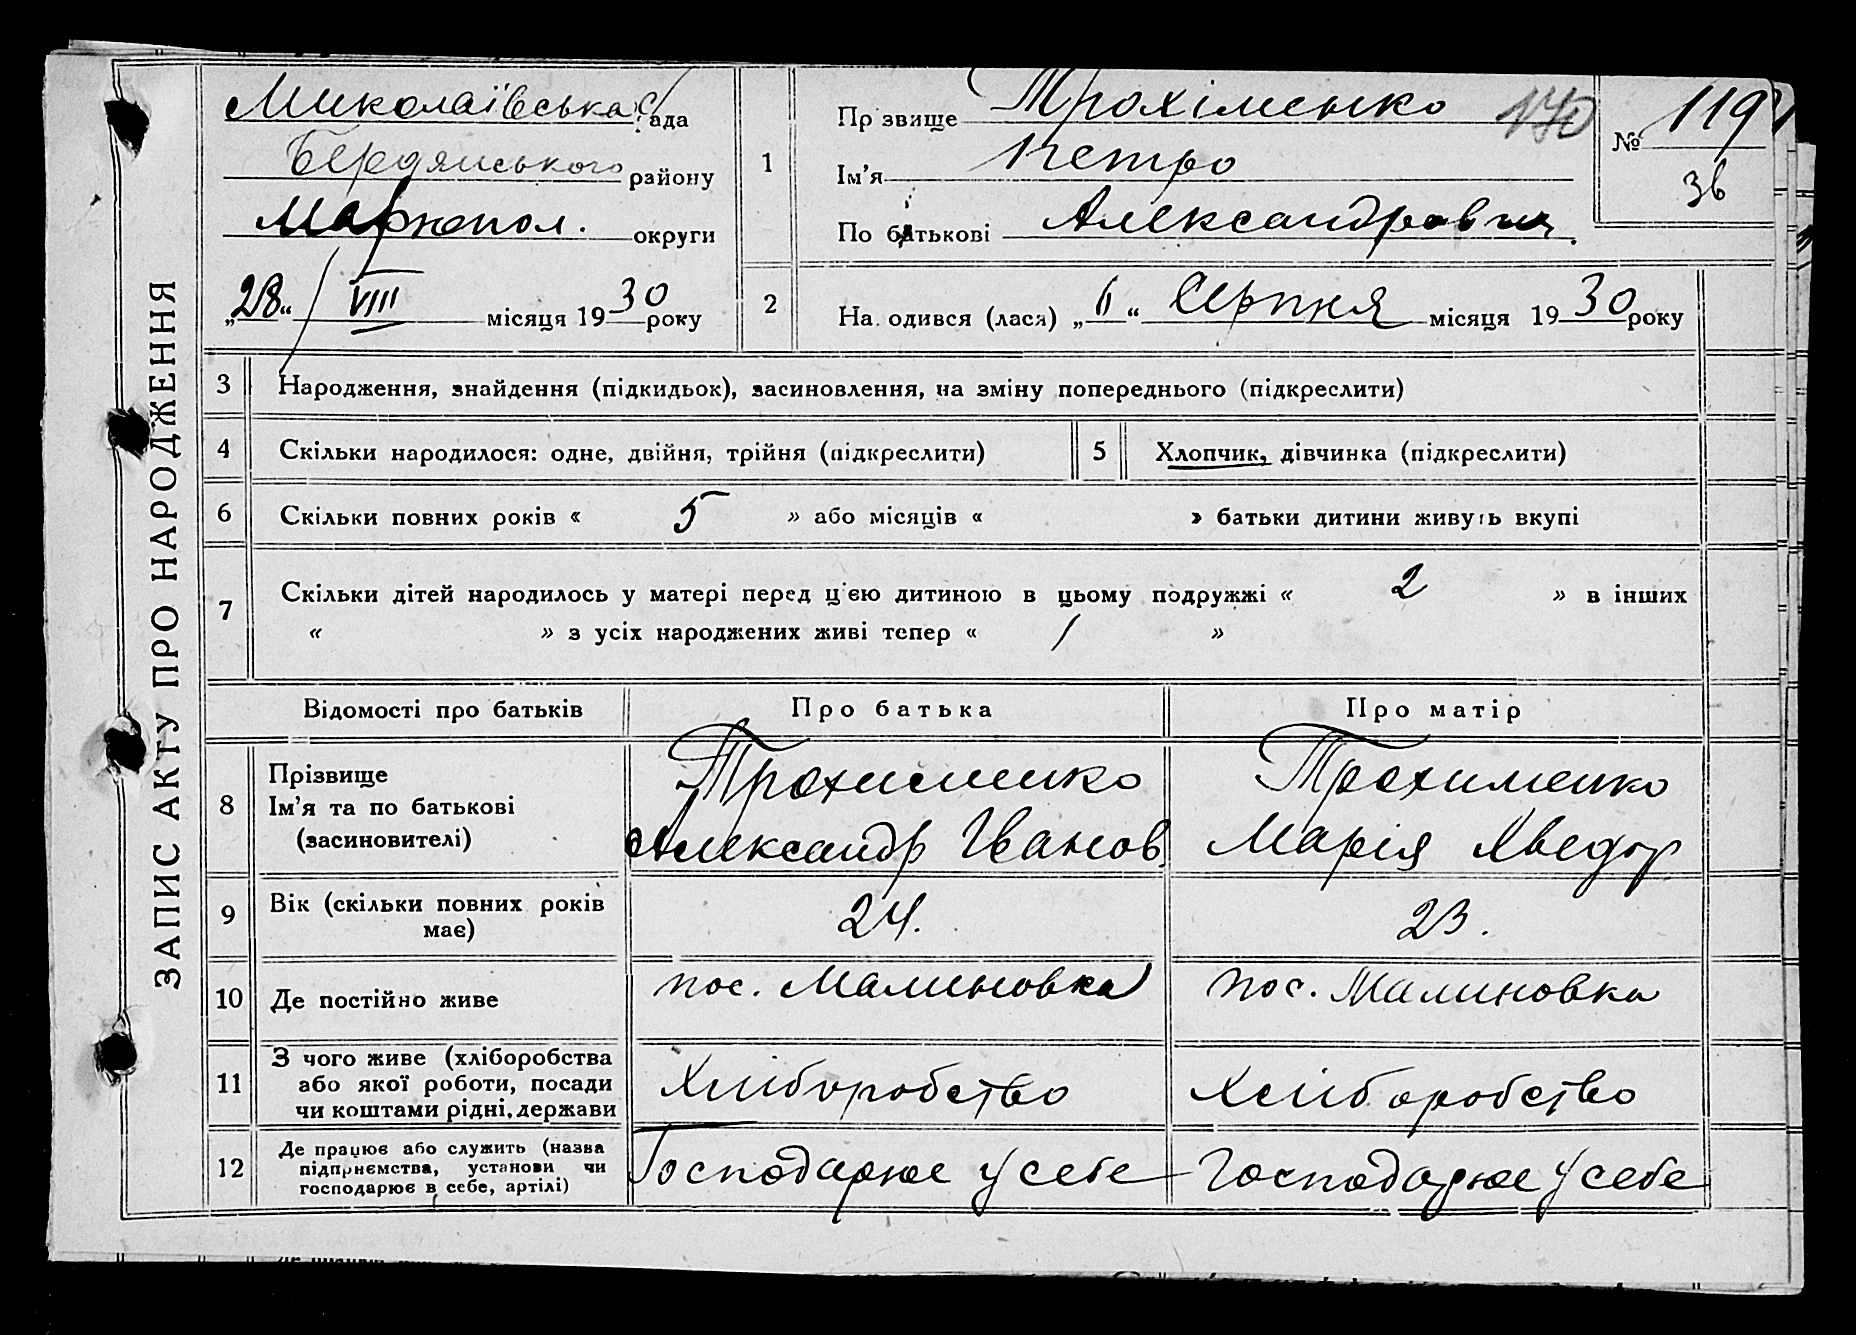 ЗАПИС АКТУ ПРО НАРОДЖЕННЯ
Миколаївська с/рада
Бердянського району
Маріюпол. округи
„28“ / VIII місяця 1930 року
1 Прізвище Трохіменко
Ім'я Петро
По батькові Александрович.
170
№ 119
Зв
2 Народився (лася) „11“ Серпня місяця 1930 року
3 Народження, знайдення (підкидьок), засиновлення, на зміну попереднього (підкреслити)
4 Скільки народилося: одне, двійня, трійня (підкреслити)
5 Хлопчик, дівчинка (підкреслити)
6 Скільки повних років « 5 » або місяців « » батьки дитини живуть вкупі
7 Скільки дітей народилось у матері перед цією дитиною в цьому подружжі « 2 » в інших
« » з усіх народжених живі тепер « 1 »
Відомості про батьків Про батька Про матір
8 Прізвище
Ім'я та по батькові
(засиновителі)
Трохименко
Александр Іванов
Трохименко
Марія Хведор.
9 Вік (скільки повних років
має)
24.
23.
10 Де постійно живе
пос. Малиновка
пос. Малиновка
11 З чого живе (хліборобства
або якої роботи, посади
чи коштами рідні, держави
Хліборобство
Хліборобство
12 Де працює або служить (назва
підприємства, установи чи
господарює в себе, артілі)
Господарює у себе
Господарює у себе